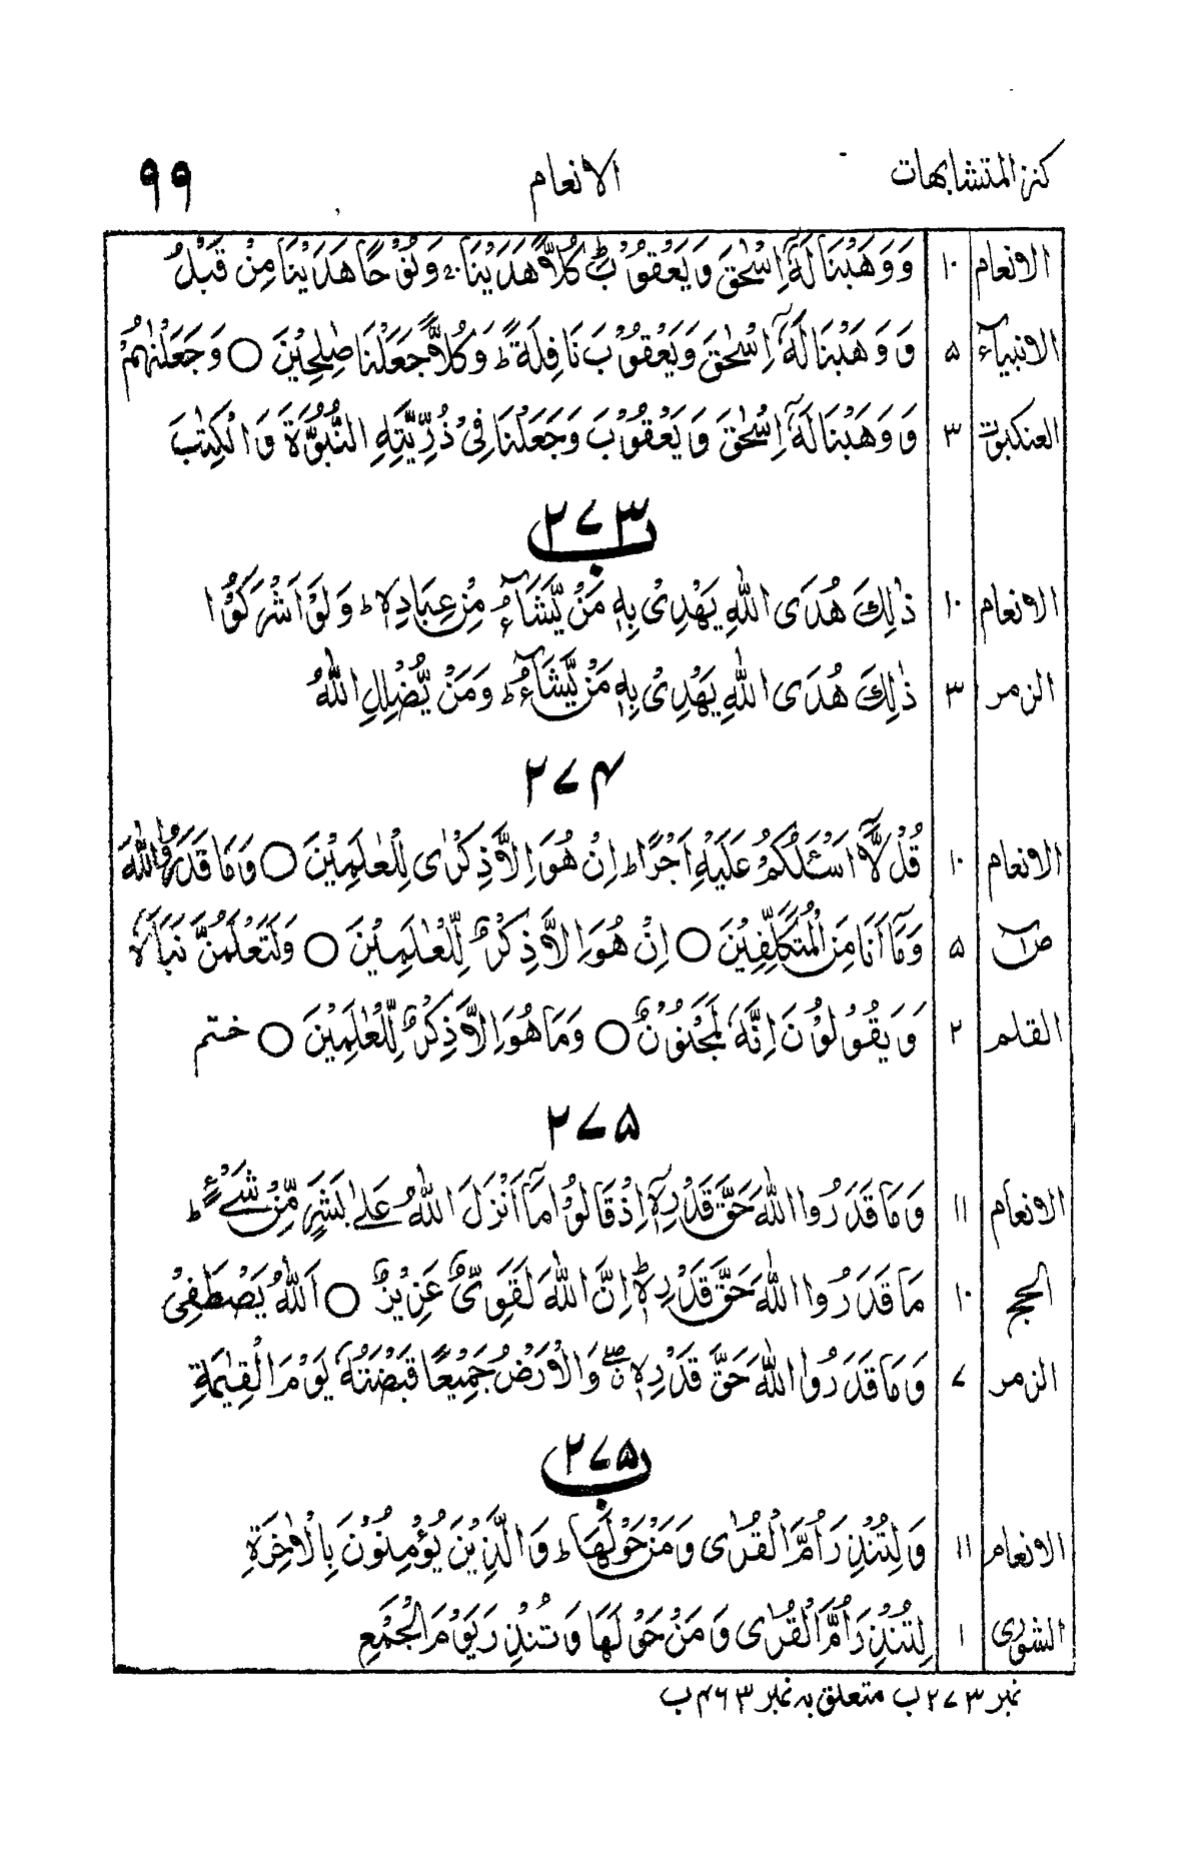 كنز المتشابهات الانعام ۹۹
الانعام ۱۰ وَوَهَبْنَا لَهٗۤ اِسْحٰقَ وَيَعْقُوْبَ ؕ كُلًّا هَدَيْنَا ۚ وَنُوْحًا هَدَيْنَا مِنْ قَبْلُ
الانبیآء ۵ وَوَهَبْنَا لَهٗۤ اِسْحٰقَ وَيَعْقُوْبَ نَافِلَةً ؕ وَكُلًّا جَعَلْنَا صٰلِحِيْنَ ○ وَجَعَلْنٰهُمْ
العنکبوت ۳ وَوَهَبْنَا لَهٗۤ اِسْحٰقَ وَيَعْقُوْبَ وَجَعَلْنَا فِيْ ذُرِّيَّتِهِ النُّبُوَّةَ وَالْكِتٰبَ
۲۷۳ ب
الانعام ۱۰ ذٰلِكَ هُدَى اللّٰهِ يَهْدِيْ بِهٖ مَنْ يَّشَآءُ مِنْ عِبَادِهٖ ؕ وَلَوْ اَشْرَكُوْا
الزمر ۳ ذٰلِكَ هُدَى اللّٰهِ يَهْدِيْ بِهٖ مَنْ يَّشَآءُ ؕ وَمَنْ يُّضْلِلِ اللّٰهُ
۲۷۴
الانعام ۱۰ قُلْ لَّاۤ اَسْـَٔلُكُمْ عَلَيْهِ اَجْرًا ؕ اِنْ هُوَ اِلَّا ذِكْرٰى لِلْعٰلَمِيْنَ ○ وَمَا قَدَرُوا اللّٰهَ
صٓ ۵ وَمَاۤ اَنَا مِنَ الْمُتَكَلِّفِيْنَ ○ اِنْ هُوَ اِلَّا ذِكْرٌ لِّلْعٰلَمِيْنَ ○ وَلَتَعْلَمُنَّ نَبَاَهٗ
القلم ۲ وَيَقُوْلُوْنَ اِنَّهٗ لَمَجْنُوْنٌ ○ وَمَا هُوَ اِلَّا ذِكْرٌ لِّلْعٰلَمِيْنَ ○ ختم
۲۷۵
الانعام ۱۱ وَمَا قَدَرُوا اللّٰهَ حَقَّ قَدْرِهٖۤ اِذْ قَالُوْا مَاۤ اَنْزَلَ اللّٰهُ عَلٰى بَشَرٍ مِّنْ شَيْءٍ ؕ
الحج ۱۰ مَا قَدَرُوا اللّٰهَ حَقَّ قَدْرِهٖ ؕ اِنَّ اللّٰهَ لَقَوِيٌّ عَزِيْزٌ ○ اَللّٰهُ يَصْطَفِيْ
الزمر ۷ وَمَا قَدَرُوا اللّٰهَ حَقَّ قَدْرِهٖ ۖ وَالْاَرْضُ جَمِيْعًا قَبْضَتُهٗ يَوْمَ الْقِيٰمَةِ
۲۷۵ ب
الانعام ۱۱ وَلِتُنْذِرَ اُمَّ الْقُرٰى وَمَنْ حَوْلَهَا ؕ وَالَّذِيْنَ يُؤْمِنُوْنَ بِالْاٰخِرَةِ
الشورٰى ۱ لِتُنْذِرَ اُمَّ الْقُرٰى وَمَنْ حَوْلَهَا وَتُنْذِرَ يَوْمَ الْجُمْعِ
نمبر ۲۷۳ ب متعلق بہ نمبر ۴۶۳ ب